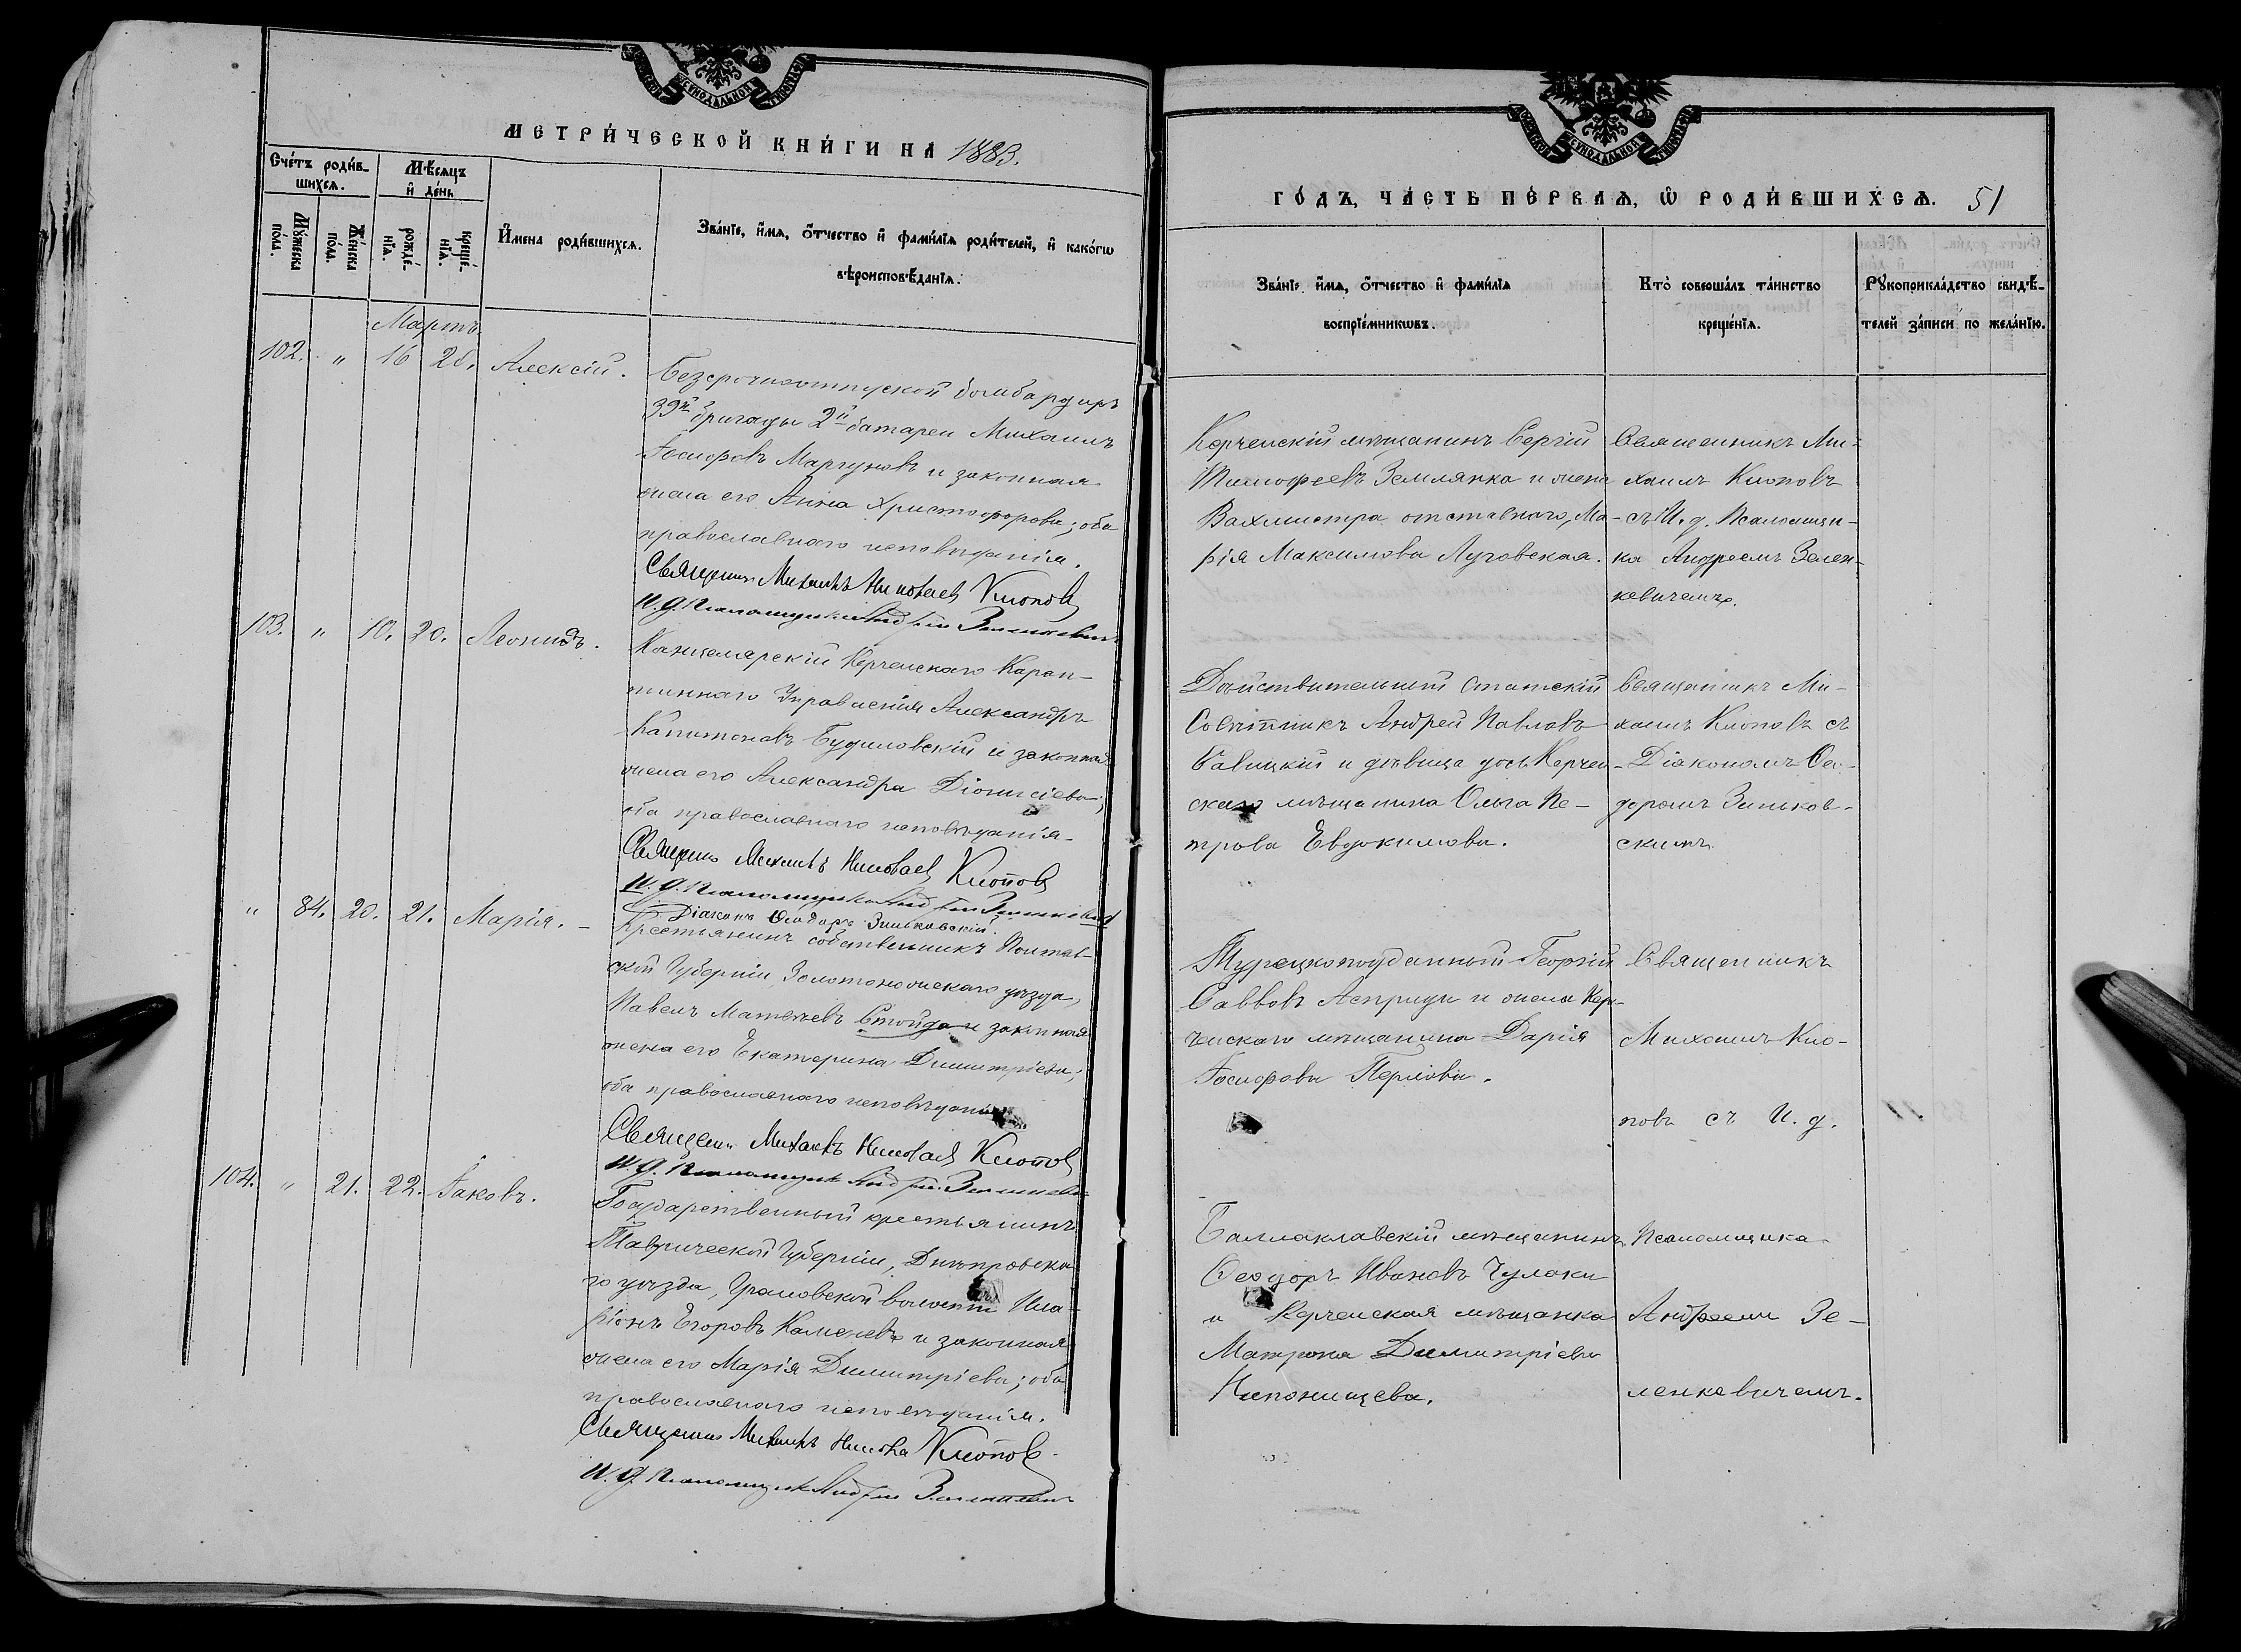 МЕТРИ́ЧЕСКОЙ КНИ́ГИ НА 1883.
Сче́тъ роди́в-
шихсѧ.
Мѣ́сѧцъ
и҆ де́нь
Мꙋ́жеска
по́ла.
Же́нска
по́ла.
рожде́-
нїѧ.
креще́-
нїѧ.
И҆́мена роди́вшихсѧ.
Зва́нїе, и҆́мѧ, ѻ҆́тчество и҆ фами́лїѧ роди́телей, и҆ како́гѡ
вѣроисповѣ́данїѧ.
Мартъ.
102. " 16 20. Алексій.
Безсрочноотпуской бомбардиръ
39й бригады 2й батареи Михаилъ
Іосифовъ Маргуновъ и законная
жена его Анна Христофорова; оба
православнаго исповѣданія.
Священникъ Михаилъ Николаев Клопов
И. д. Псаломщика Андрей Зеленкевичъ
103. " 10. 20. Леонидъ.
Канцелярскій Керченскаго Каран-
тиннаго Управленія Александръ
Капитоновъ Будиловскій и законная
жена его Александра Діонисіева;
оба православнаго исповѣданія.
Священ. Михаилъ Николаев Клопов
И. д. Псаломщика Андрей Зеленкевич
Діаконъ Ѳеодоръ Зиньковскій.
" 84. 20. 21. Марія.
Крестьянинъ собственникъ Полтав-
ской Губерніи Золотоношскаго уѣзда,
Павелъ Матвѣевъ Стойда и законная
жена его Екатерина Димитріева;
оба православнаго исповѣданія
Священ. Михаилъ Николаев Клопов
И. д. Псаломщик Андрей Зеленкевич
104. " 21. 22. Іаковъ.
Государственный крестьянинъ
Таврической Губерніи, Днѣпровска
го уѣзда, волости Ила-
ріонъ Егоровъ Каменевъ и законная
жена его Марія Димитріева; оба
православнаго исповѣданія.
Священник Михаилъ Никола Клопов
И. д. Псаломщик Андрей Зеленкевич
ГО́ДЪ, ЧА́СТЬ ПЕ́РВАѦ, Ѽ РОДИ́ВШИХСѦ. 51
Зва́нїе и҆́мѧ, ѻ҆́тчество и҆ фами́лїѧ
воспрїе́мникѡвъ.
Кто̀ соверша́лъ та́инство
креще́нїѧ.
Рꙋкоприкла́дство свидѣ́-
телей за́писи по жела́нїю.
Керченскій мѣщанинъ Сергій
Тимофеевъ Землянка и жена
Вахмистра отставнаго, Ма-
рія Максимова Луговская.
Священникъ Ми-
хаилъ Клоповъ
съ И. д. Псаломщи-
ка Андреемъ Зелен-
кевичемъ.
Дѣйствительный Статскій
Совѣтникъ Андрей Павловъ
Савицкій и дѣвица дочь Керчен-
скаго мѣщанина Ольга Пе-
трова Евдокимова.
Священникъ Ми-
хаилъ Клоповъ съ
Діакономъ Ѳео-
доромъ Зиньков-
скимъ.
Турецкоподданный Георгій
Саввовъ Асприди и жена Кер-
ченскаго мѣщанина Дарія
Іосифова Перлова.
Священникъ
Михаилъ Кло-
повъ съ И. д.
Балаклавскій мѣщанинъ
Ѳеодоръ Ивановъ Чулаки
и Керченская мѣщанка
Матрона Димитріева
Непонищева.
Псаломщика
Андреемъ Зе-
ленкевичемъ.